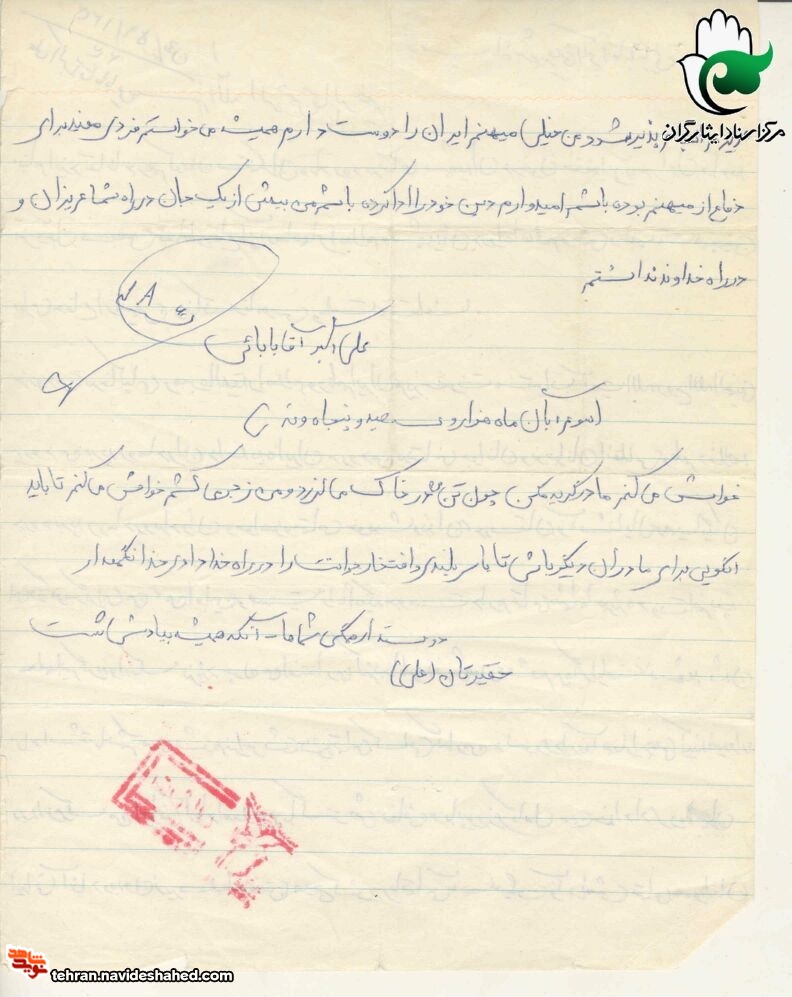 مرکز اسناد ایثارگران
پذیر میشود من خیلی میهنم ایران را دوست دارم همیشه می خواستم فردی مفید برای
دفاع از میهنم بوده باشم امیدوارم دین خود را ادا کرده باشم من بیش از یک جان در راه شما عزیزان و
در راه خداوند نداشتم
علی اکبر آقابابائی
آبان ماه هزار و سیصد و پنجاه و نه
خواهش می کنم مادر گریه مکن چون تن در خاک می لرزد و من زجر می کشم خواهش می کنم تا باید
الگویی برای مادران دیگر باشی تا با سربلندی و افتخار جوانت را در راه خدا دادی خدا نگهدار
دوستدار همگی شما آنکه همیشه بیادش است
حقیرتان (علی)
نوید شاهد
tehran.navideshahed.com